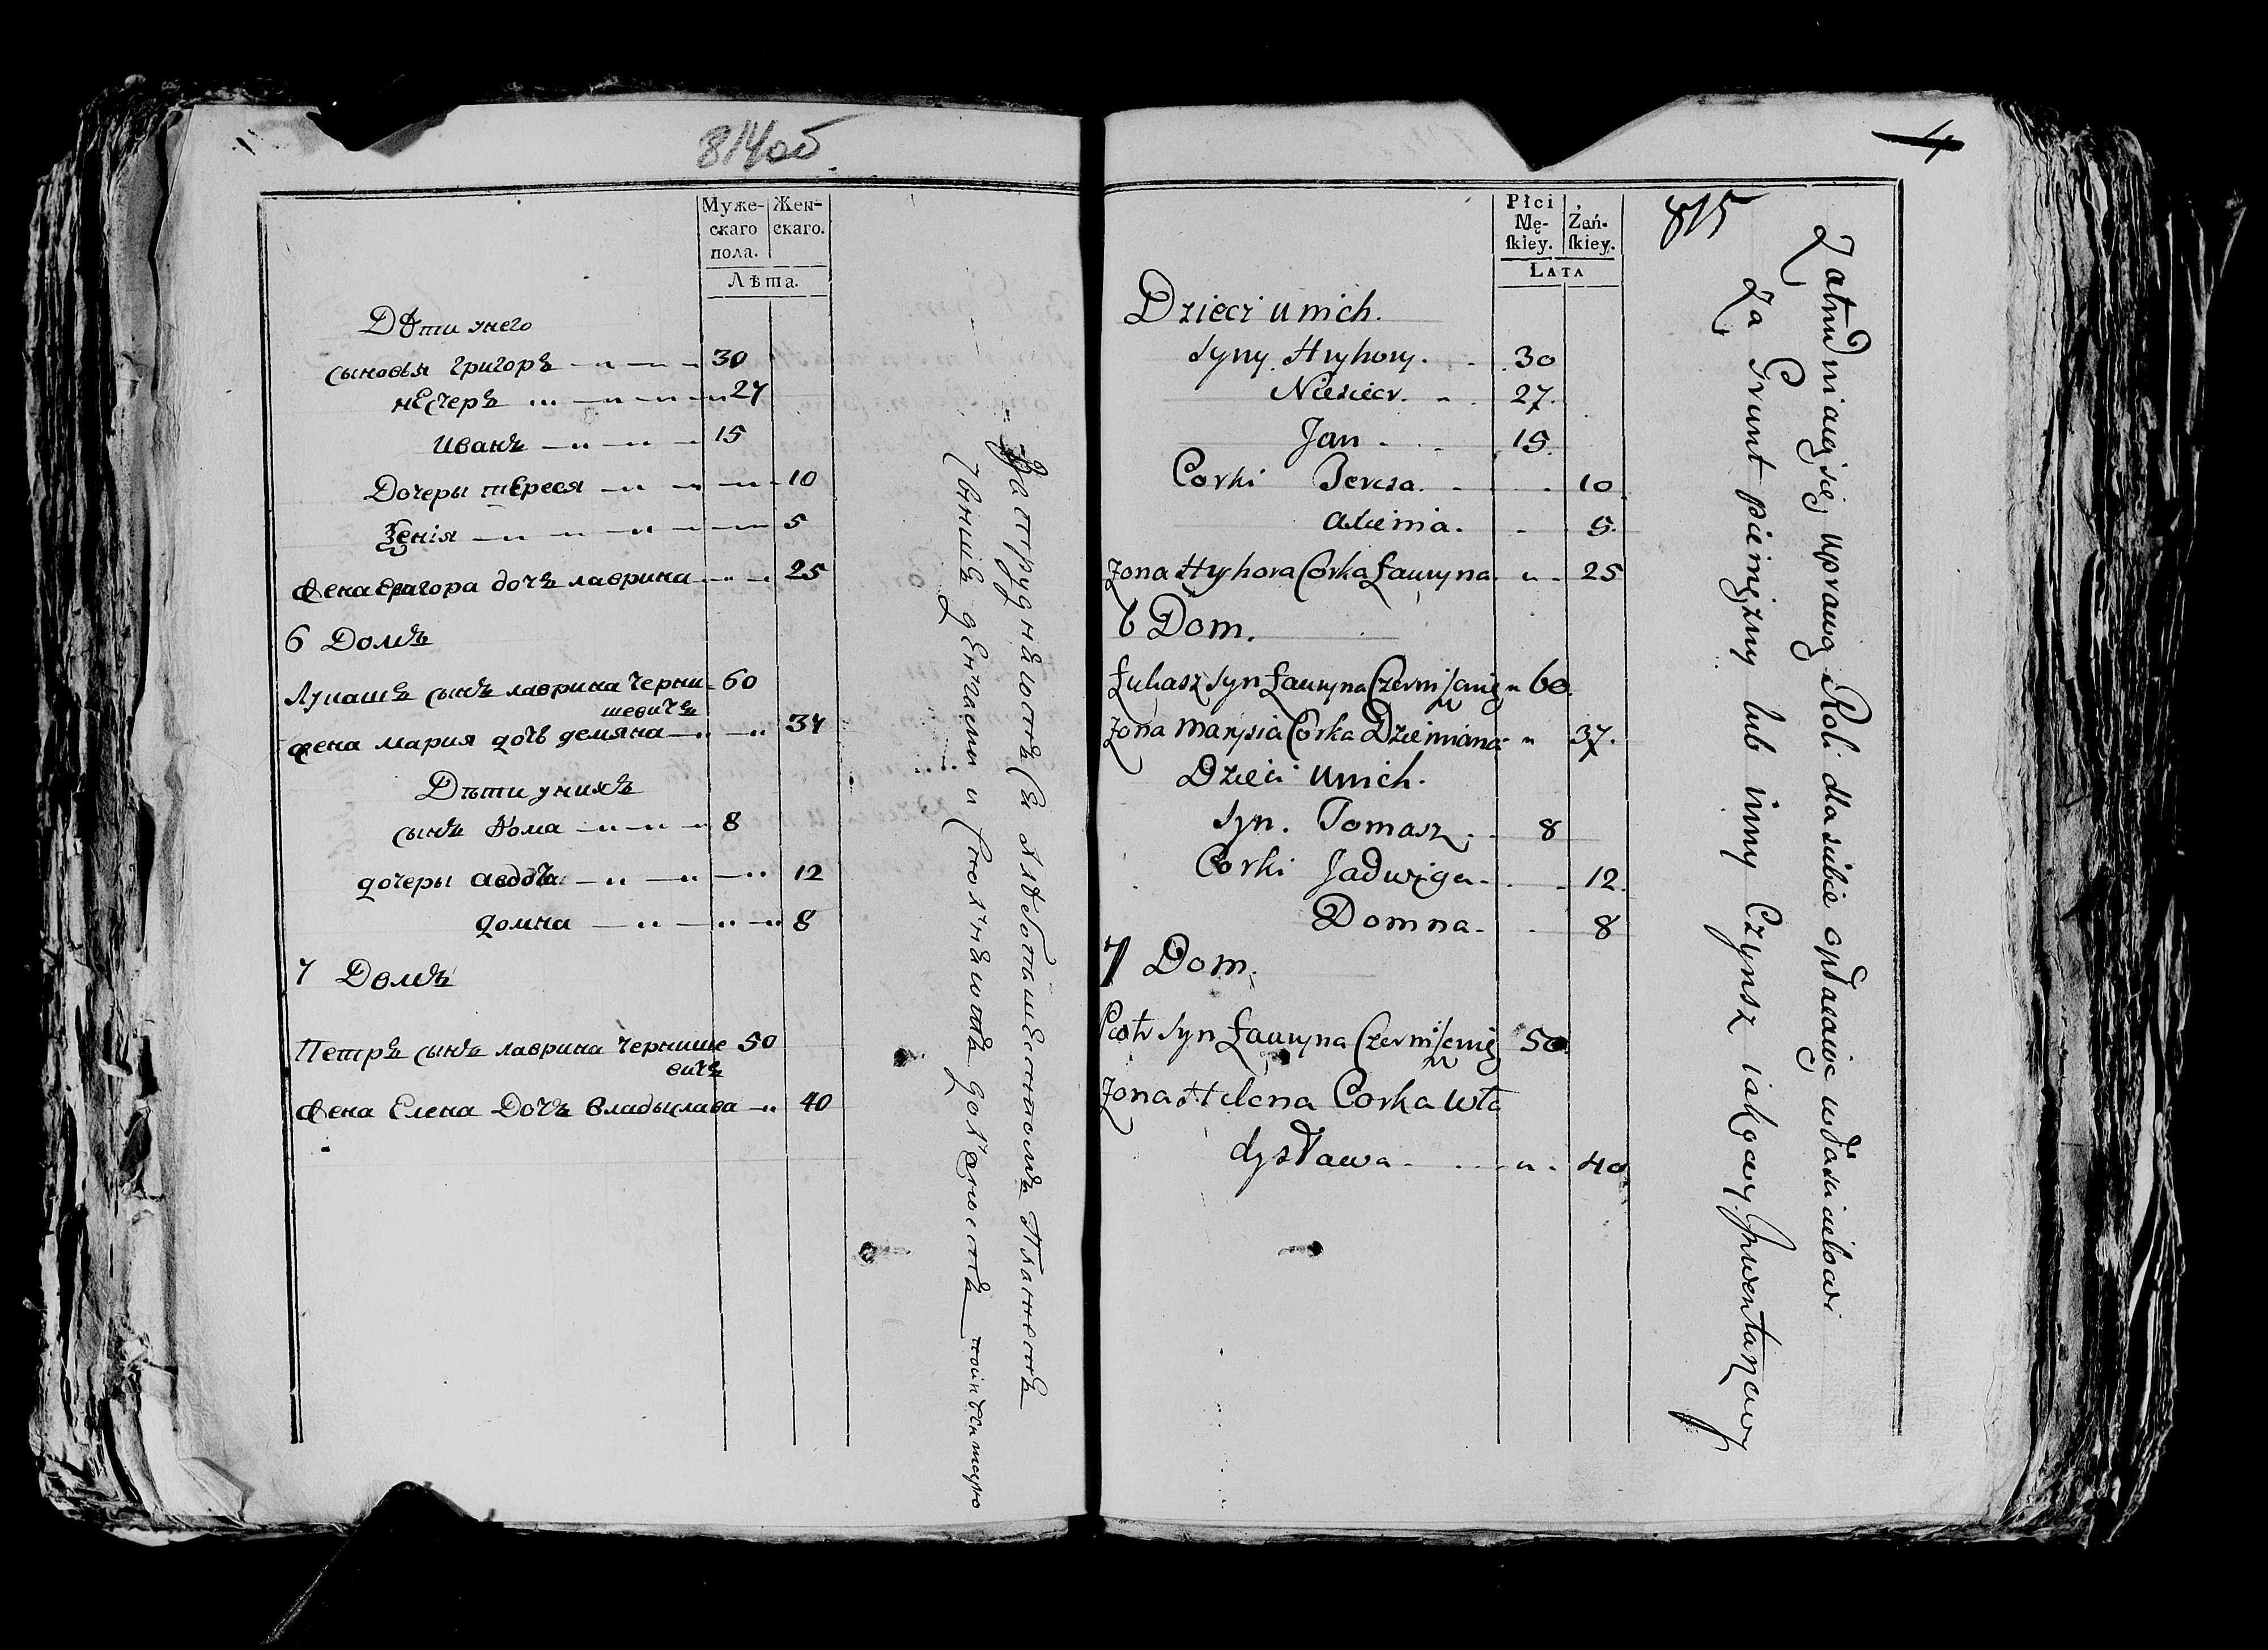 814 об
Муже-
скаго
пола.
Жен-
скаго.
Лѣта.
Дѣти унего
сыновья григоръ 30
нестеръ 27
иванъ 15
Дочеры тереся 10
Зенія 5
жена григора дочъ лаврина 25
6 Домъ
Лукашъ сынъ лаврина Черни- 60
шевичъ
жена мария дочъ демяна 37
Дѣти унихъ
сынъ Фома 8
дочеры авдотя 12
домна 8
7 Домъ
Петръ сынъ лаврина Чернише 50
вичъ
жена Елена Дочъ владыслава 40
затрудняютъ ся хлебопашеством
денгами и
4
815
Płci
Mę-
ſkiey.
Żań-
ſkiey.
Lata
Dzieci u nich.
Syny Hryhory. 30
Niesiecr. 27.
Jan 15.
Corki Teresa. 10
axienia. 5.
Zona Hryhora Corka Ławryna 25
6 Dom.
Łukasz Syn Ławryna Czerniſzewig 60.
Zona Marysia Corka Dziemiana 37.
Dzieci u nich.
Syn. Tomasz 8
Corki Jadwiga 12.
Domna 8
7 Dom.
Piotr Syn Ławryna Czerniſzewig 50.
Zona Helena Corka Wła
dysława 40
Zatrudniaiey się uprawą Roli dla siebie opłacaiąc właścicielowi
Za Grunt pieniężny lub inny Czynsz iakowy Jnwentarzowy